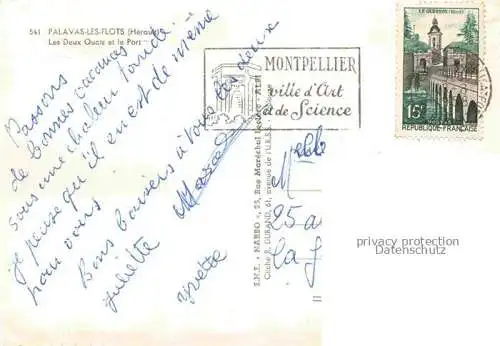 541 PALAVAS-LES-FLOTS (Hérault)
Les Deux Quais et le Port
Passons
de bonnes vacances
sous une chaleur torride
je pense qu'il en est de même
pour vous
Bons baisers à vous les deux
Juliette
Yvette
Marcel
MONTPELLIER
ville d'Art
& de Science
LE QUESNOY (Nord)
15F
REPUBLIQUE FRANÇAISE
S.M.E. « MARBO », 25, Rue Maréchal Leclerc - ALBI
Cliché R. DURAND, 61, avenue de l'U.R.S.S.
Melle
25 a
la J
privacy protection
Datenschutz